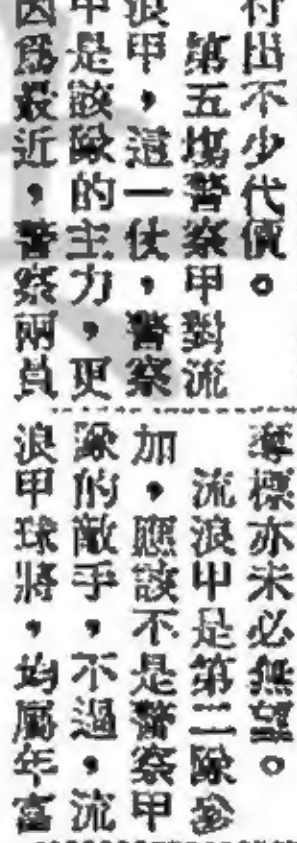 付出不少代價。
第五場警察甲對流
浪甲，這一仗，警察
甲是該隊的主力，更
因為最近，警察兩員
奪標亦未必無望。
流浪甲是第二隊參
加，應該不是警察甲
隊的敵手，不過，流
浪甲球將，均屬年富